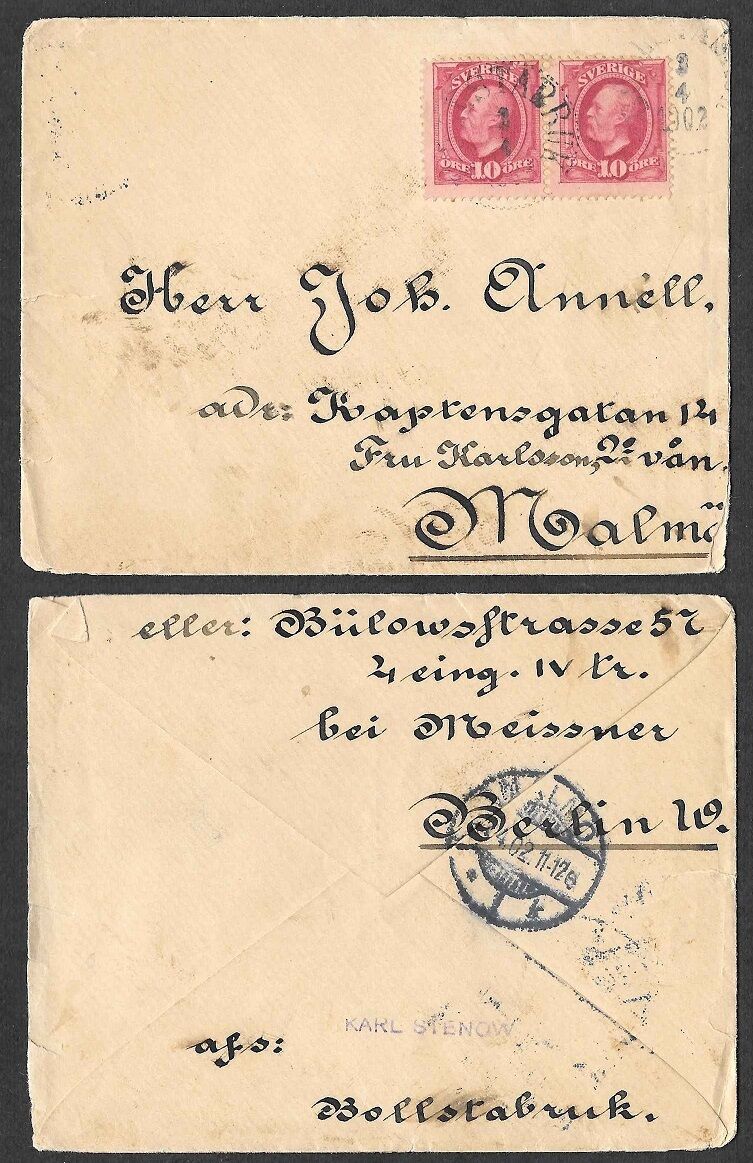 SVERIGE SVERIGE
ÖRE 10 ÖRE ÖRE 10 ÖRE
3
4
1902
Herr Joh. Annell,
adr: Kaptensgatan 14
Fru Karlsson, 2 vån.
Malmö
eller: Bülowsstrasse 57
4 eing. IV tr.
bei Meissner
Berlin W.
4.02. 11-12
1 k
KARL STENOW
afs:
Bollstabruk.